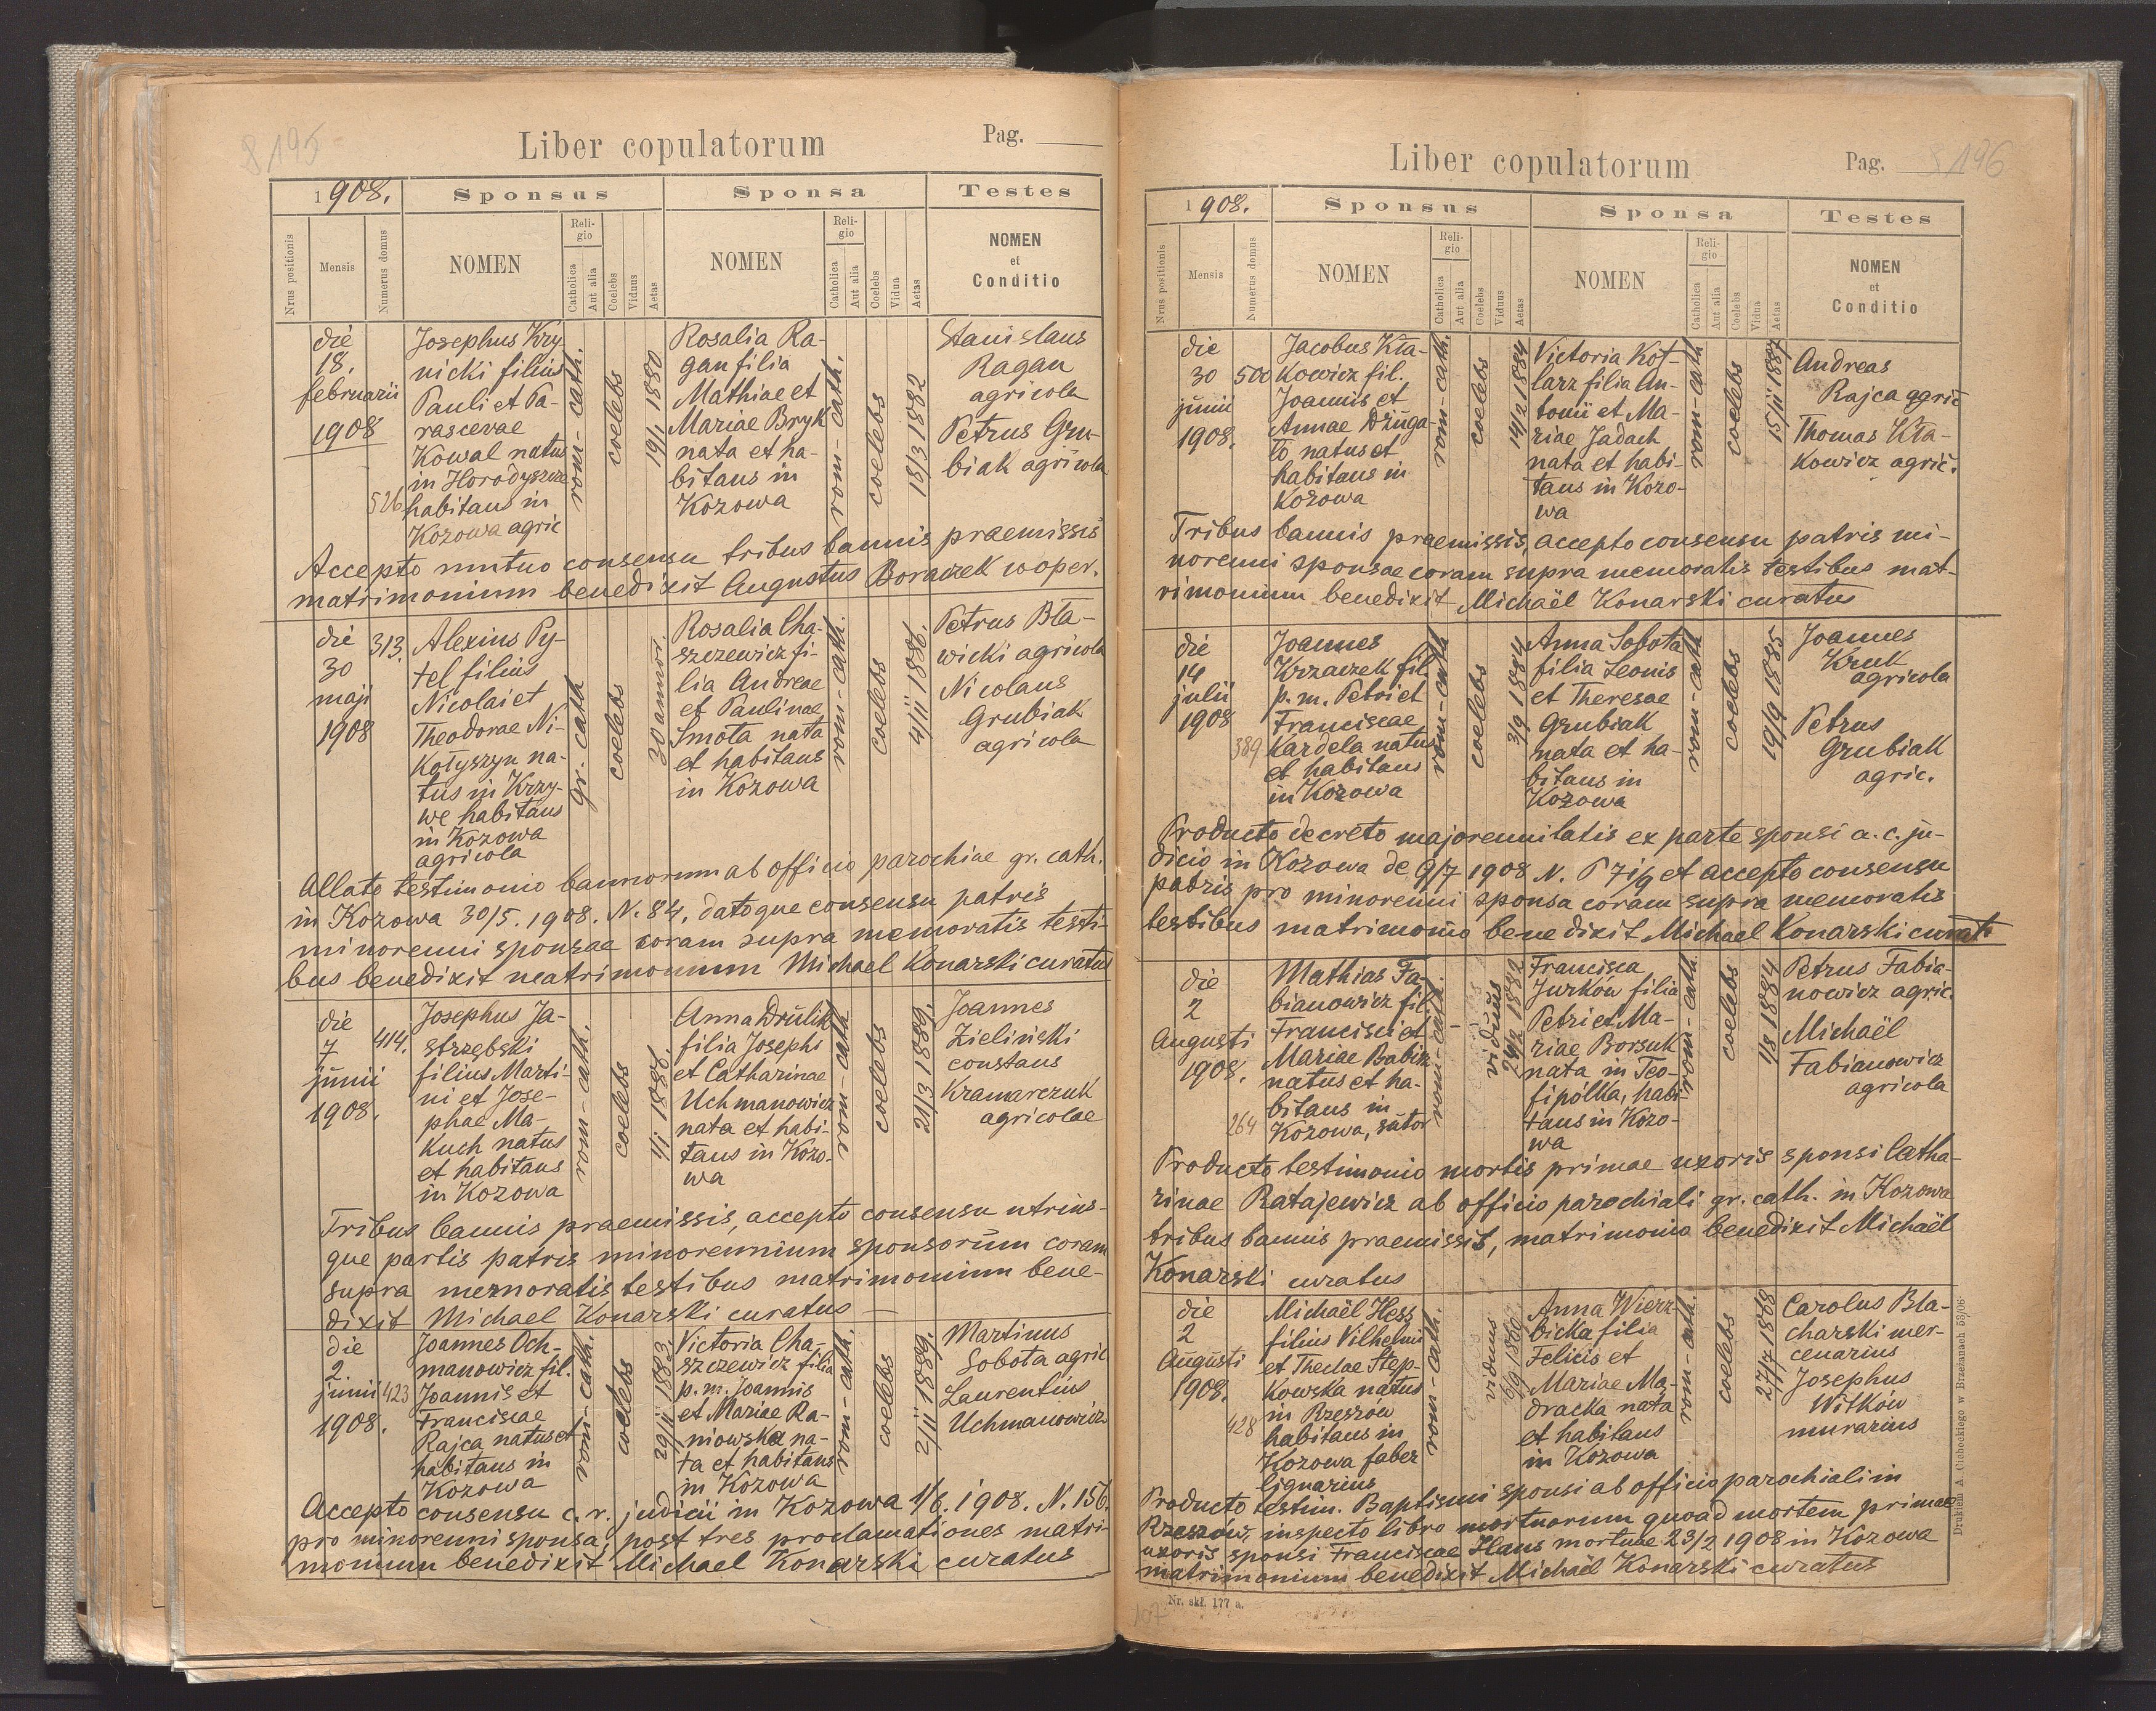 8/195
Liber copulatorum
Pag.
1908.
Sponsus
Sponsa
Testes
Nrus positionis
Mensis
Numerus domus
NOMEN
Religio
Catholica
Aut alia
Coelebs
Viduus
Aetas
NOMEN
Religio
Catholica
Aut alia
Coelebs
Vidua
Aetas
NOMEN
et
Conditio
die
18.
februarii
1908
526
Josephus Kry
nicki filius
Pauli et Pa-
rascevae
Kowal natus
in Horodyszcze
habitans in
Kozowa agric
rom-cath.
coelebs
19/1 1880
Rosalia Ra-
gan filia
Mathiae et
Mariae Bryk
nata et ha-
bitans in
Kozowa
rom-cath.
coelebs
18/3 1882
Stanislaus
Ragan
agricola
Petrus Gru-
biak agricola
Accepto mutuo consensu tribus bannis praemissis
matrimonium benedixit Augustus Boraczek cooper.
die
30
maji
1908
313.
Alexius Py-
tel filius
Nicolai et
Theodorae Ni-
kołyszyn na-
tus in Krzy-
we habitans
in Kozowa
agricola
gr. cath
coelebs
30 annor.
Rosalia Cha-
szczewicz fi-
lia Andreae
et Paulinae
Smota nata
et habitans
in Kozowa
rom-cath.
coelebs
4/11 1886.
Petrus Bła-
wicki agricola
Nicolaus
Grubiak
agricola
Allato testimonio bannorum ab officio parochiae gr. cath.
in Kozowa 30/5. 1908. N. 84, datoque consensu patris
minorenni sponsae coram supra memoratis testi-
bus benedixit matrimonium Michael Konarski curatus
die
7
junii
1908.
414.
Josephus Ja-
strzębski
filius Marti-
ni et Jose-
phae Ma-
kuch natus
et habitans
in Kozowa
rom-cath.
coelebs
1/1 1886.
Anna Drulik
filia Josephi
et Catharinae
Uchmanowicz
nata et habi-
tans in Kozo-
wa
rom-cath
coelebs
21/3 1889.
Joannes
Zieliński
constans
Kramarczuk
agricolae
Tribus bannis praemissis, accepto consensu utrius-
que partis patris minorennium sponsorum coram
supra memoratis testibus matrimonium bene-
dixit Michael Konarski curatus
die
2.
junii
1908.
423
Joannes Och-
manowicz fil.
Joannis et
Franciscae
Rajca natus et
habitans in
Kozowa
rom-cath.
coelebs
29/11 1883
Victoria Cha-
szczewicz filia
p. m. Joannis
et Mariae Ra-
niowska na-
ta et habitans
in Kozowa
rom-cath.
coelebs
2/11 1889.
Martinus
Sobota agric
Laurentius
Uchmanowicz
Accepto consensu c. r. judicii in Kozowa 1/6. 1908. N. 156.
pro minorenni sponsa, post tres proclamationes matri-
monium benedixit Michael Konarski curatus
8/196
Liber copulatorum
Pag.
1908.
Sponsus
Sponsa
Testes
Nrus positionis
Mensis
Numerus domus
NOMEN
Religio
Catholica
Aut alia
Coelebs
Viduus
Aetas
NOMEN
Religio
Catholica
Aut alia
Coelebs
Vidua
Aetas
NOMEN
et
Conditio
die
30
junii
1908.
500
Jacobus Kła-
kowicz fil.
Joannis et
Annae Dżuga-
ło natus et
habitans in
Kozowa
rom-cath.
coelebs
14/2 1884
Victoria Kot-
larz filia An-
tonii et Ma-
riae Jadach
nata et habi-
tans in Kozo-
wa
rom-cath
coelebs
15/11 1887
Andreas
Rajca agric
Thomas Kła-
kowicz agric.
Tribus bannis praemissis, accepto consensu patris mi-
norenni sponsae coram supra memoratis testibus mat-
rimonium benedixit Michaël Konarski curatus
die
14
julii
1908
389
Joannes
Krzaczek fil
p. m. Petri et
Franciscae
Kardela natus
et habitans
in Kozowa
rom-cath
coelebs
3/9 1884
Anna Sobota
filia Leonis
et Theresae
Grubiak
nata et ha-
bitans in
Kozowa
rom-cath
coelebs
19/9 1885
Joannes
Kruk
agricola
Petrus
Grubiak
agric.
Producto decreto majorennitatis ex parte sponsi a. c. ju-
dicio in Kozowa de 9/7 1908 N. P 71/9 et accepto consensu
patris pro minorenni sponsa coram supra memoratis
testibus matrimonio benedixit Michael Konarski curat
die
2
Augusti
1908.
264
Mathias Fa-
bianowicz fil.
Francisci et
Mariae Babiz
natus et ha-
bitans in
Kozowa, sutor
rom-cath.
viduus
24/2 1882
Francisca
Jurków filia
Petri et Ma-
riae Borsuk
nata in Teo-
fipółka, habi-
tans in Kozo-
wa
rom-cath.
coelebs
1/3 1884
Petrus Fabia-
nowicz agric.
Michaël
Fabianowicz
agricola
Producto testimonio mortis primae uxoris sponsi Catha-
rinae Ratajewicz ab officio parochiali gr. cath. in Kozowa
tribus bannis praemissis, matrimonio benedixit Michaël
Konarski curatus
die
2
Augusti
1908.
428
Michaël Hess
filius Vilhelmi
et Theclae Step-
kowska natus
in Rzeszów
habitans in
Kozowa faber
lignarius
rom-cath.
viduus
Anna Wierz-
bicka filia
Felicis et
Mariae Ma-
dracka nata
et habitans
in Kozowa
rom-cath.
coelebs
27/7 1868
Carolus Bla-
charski mer-
cenarius
Josephus
Witków
murarius
Producto testim. Baptismi sponsi ab officio parochiali in
Rzeszów, inspecto libro mortuorum quoad mortem primae
uxoris sponsi Franciscae Haus mortuae 23/2 1908 in Kozowa
matrimonium benedixit Michaël Konarski curatus
Nr. skł. 177 a.
107
Drukiem A. Cichockiego w Brzeżanach 53/06